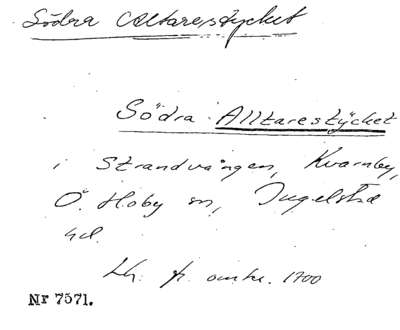 Södra Altarestycket
Södra Alltarestÿcket
i Strandvången, Kvarnby,
Ö. Hoby sn, Ingelstad
hd.
Lh. fr. omkr. 1700
Nr 7571.